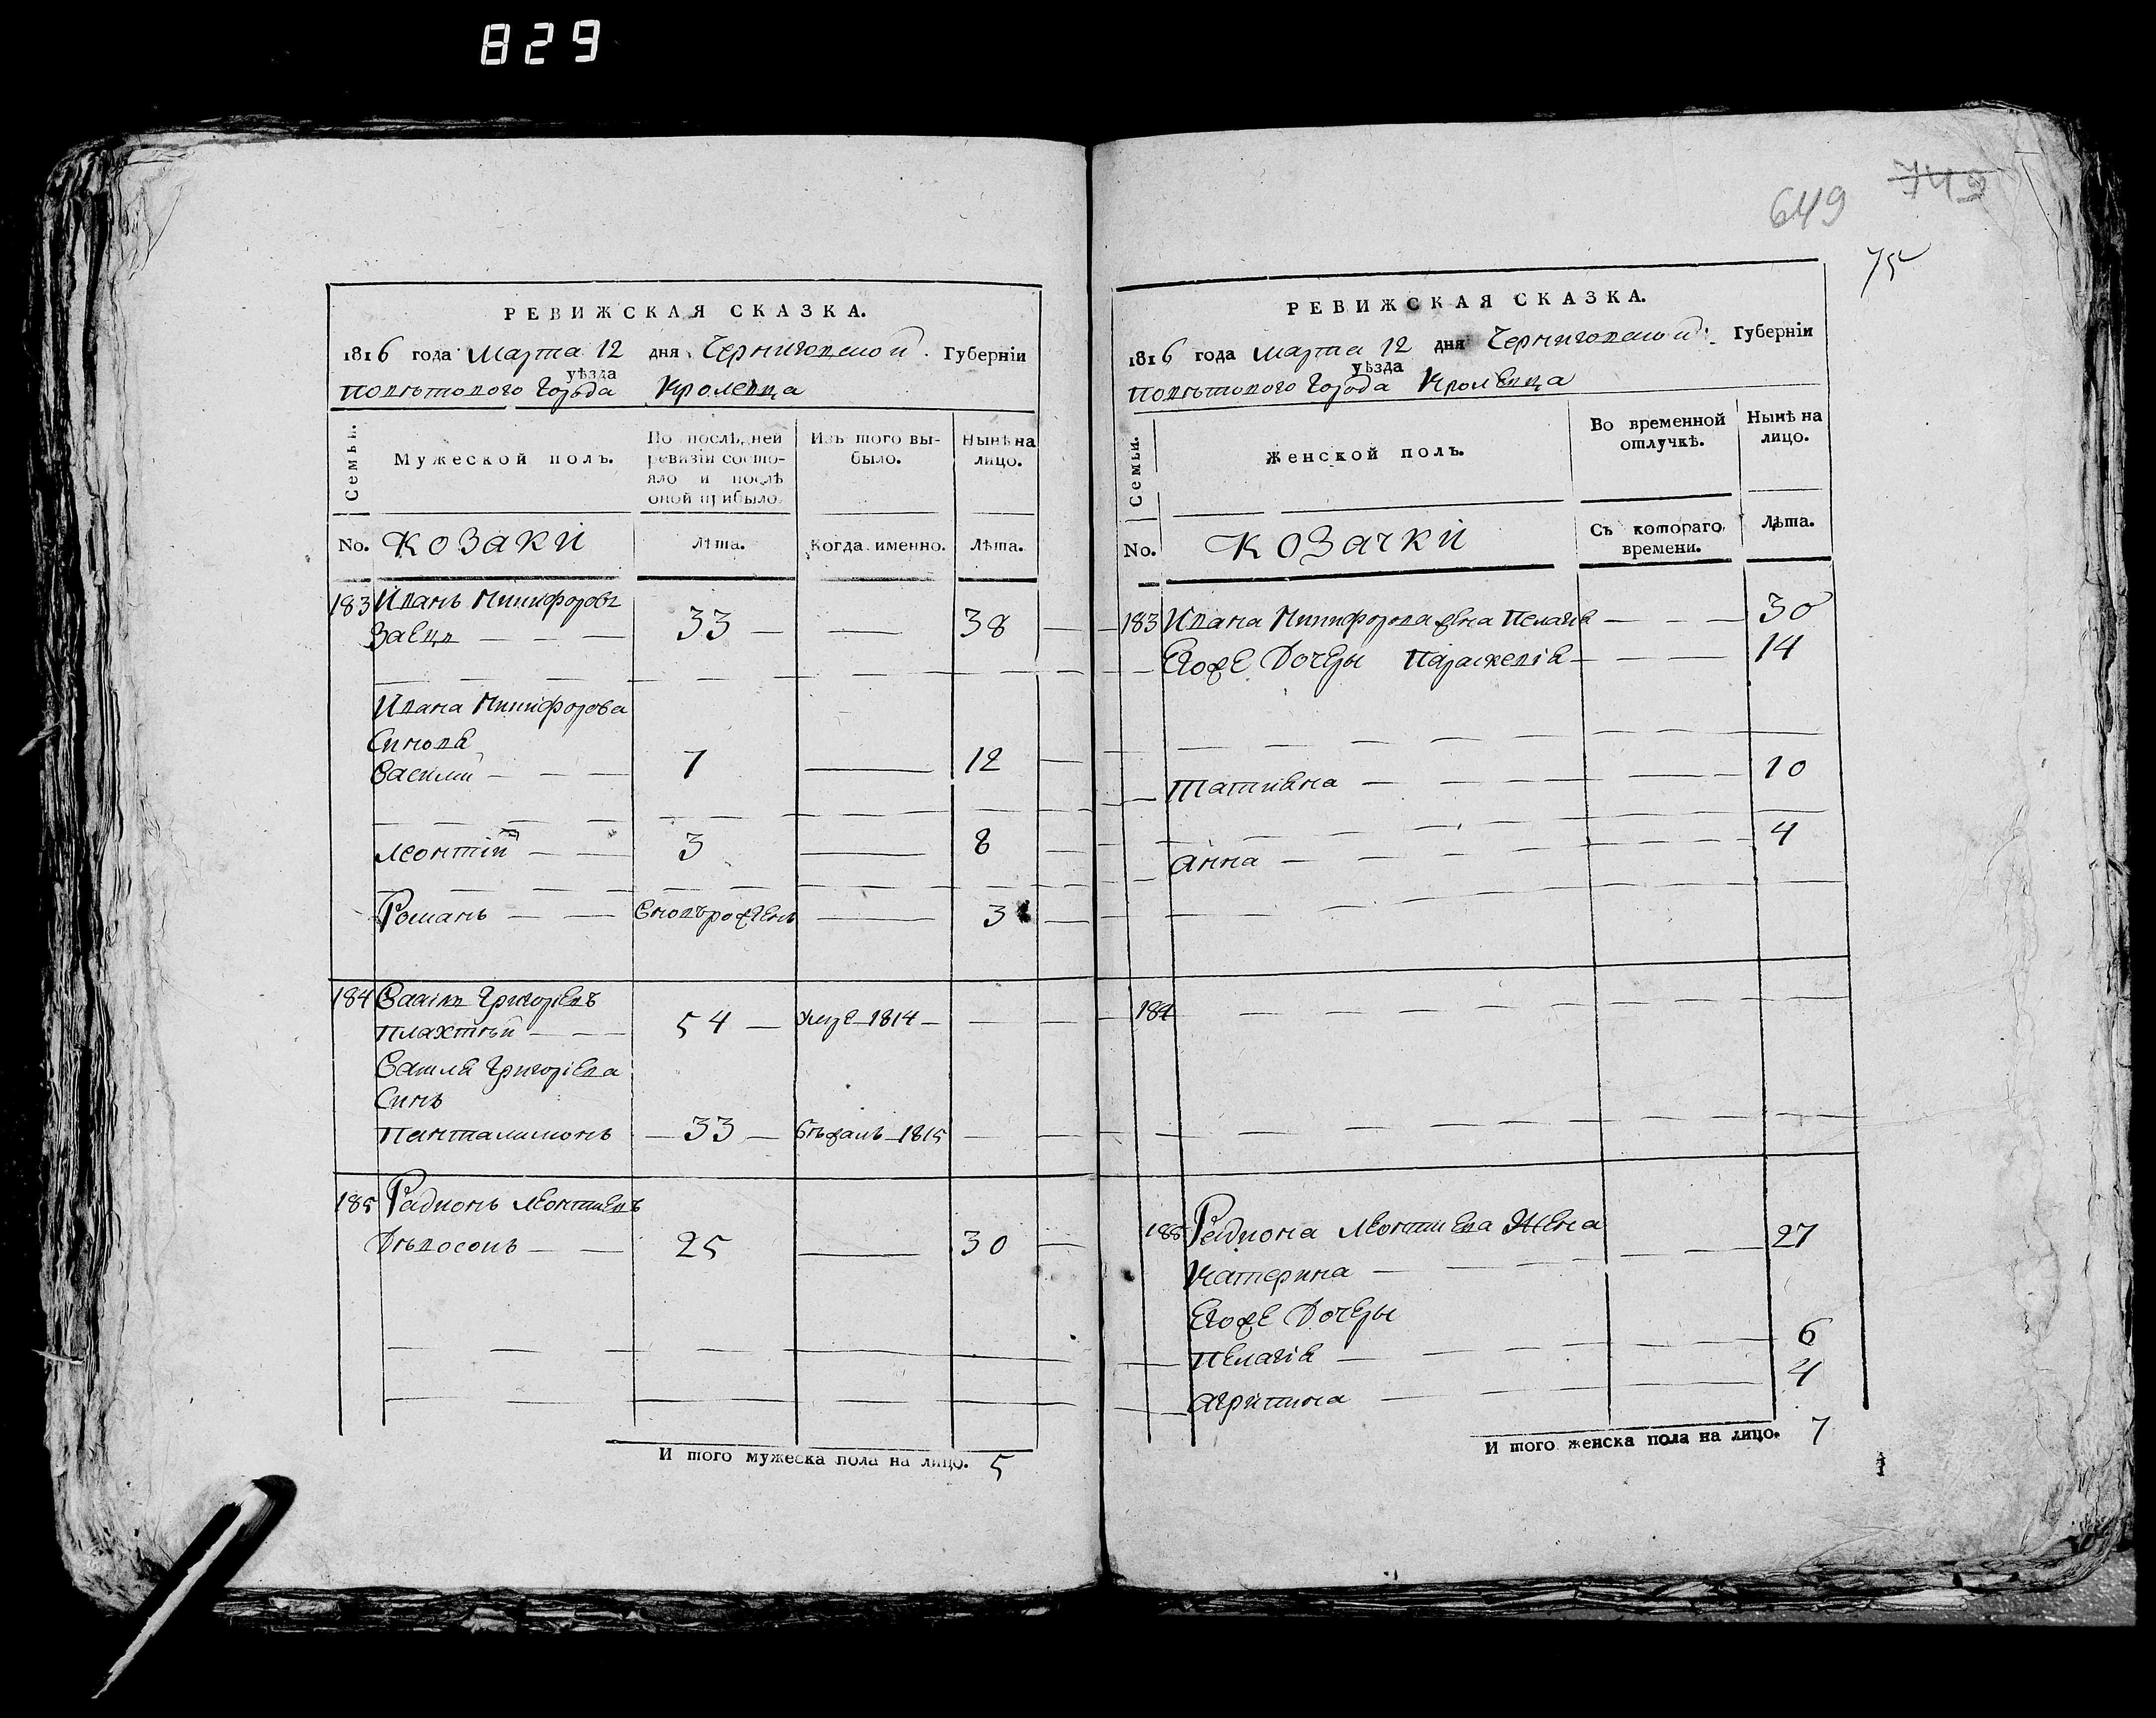 829
649
749
75
РЕВИЖСКАЯ СКАЗКА.
1816 года Марта 12 дня Черниговской Губернiи
уѣзда
Поветового Города Кролевца
Семьи.
Мужеской полъ.
По послѣдней ревизiи состо-
яло и послѣ
оной прибыло.
Изъ того вы-
было.
Нынѣ на
лицо.
No. Козаки Лѣта. Когда именно. Лѣта.
183 Иванъ Никифоровъ
Заецъ 33 38
Ивана Никифорова
Синовя
Василий 7 12
Леонтiй 3 8
Романъ Вновърожденъ 3
184 Василь Григориевъ
Плахтѣй 54 Умре 1814
Василя Григориева
Синъ
Панталимонъ 33 Бѣжалъ 1815
185 Радионъ Леонтиевъ
25 30
И того мужеска пола на лицо. 5
РЕВИЖСКАЯ СКАЗКА.
1816 года Марта 12 дня Черниговской Губернiи
уѣзда
Поветового Города Кролевца
Семьи.
Женской полъ.
Во временной
отлучкѣ.
Нынѣ на
лицо.
No. Козачки Съ котораго
времени. Лѣта.
183 Ивана Никифорова жена Пелагия 30
Егоже Дочеры Параскевiя 14
Татияна 10
Анна 4
184
185 Радиона Леонтиева Жена 27
Катерина
Егоже Дочеры
Пелагiя 6
Агрипина 4
И того женска пола на лицо. 7